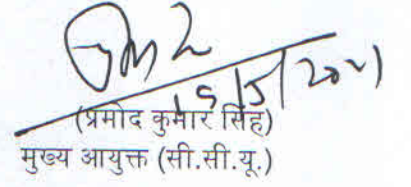 15/5/2021
(प्रमोद कुमार सिंह)
मुख्य आयुक्त (सी.सी.यू.)